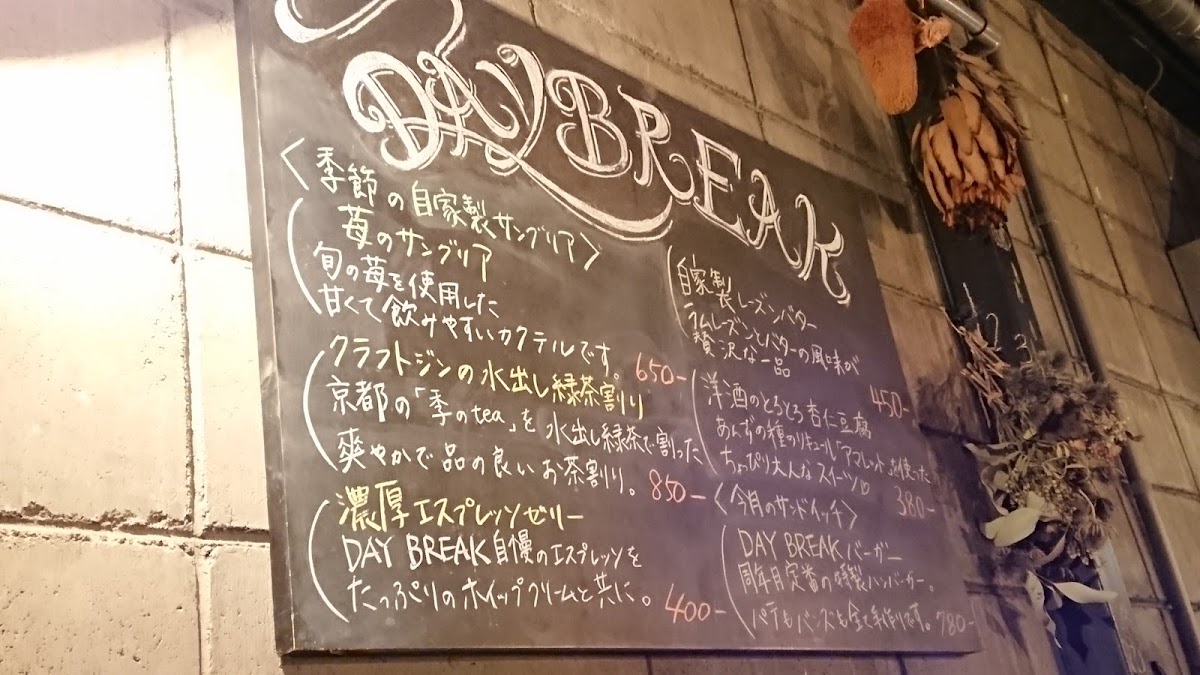 DAYBREAK
〈季節の自家製サングリア〉
苺のサングリア
旬の苺を使用した
甘くて飲みやすいカクテルです。 650-
クラフトジンの水出し緑茶割り
京都の「季のtea」を水出し緑茶で割った
爽やかで品の良いお茶割り。 850-
濃厚エスプレッソゼリー
DAY BREAK自慢のエスプレッソを
たっぷりのホイップクリームと共に。 400-
自家製レーズンバター
ラムレーズンとバターの風味が
贅沢な一品 450-
洋酒のとろとろ杏仁豆腐
あんずの種のリキュール「アマレット」を使った
ちょっぴり大人なスイーツ♡ 380-
〈今月のサンドイッチ〉
DAY BREAKバーガー
定番の特製ハンバーガー。
パテもバンズも全て手作りです。 780-